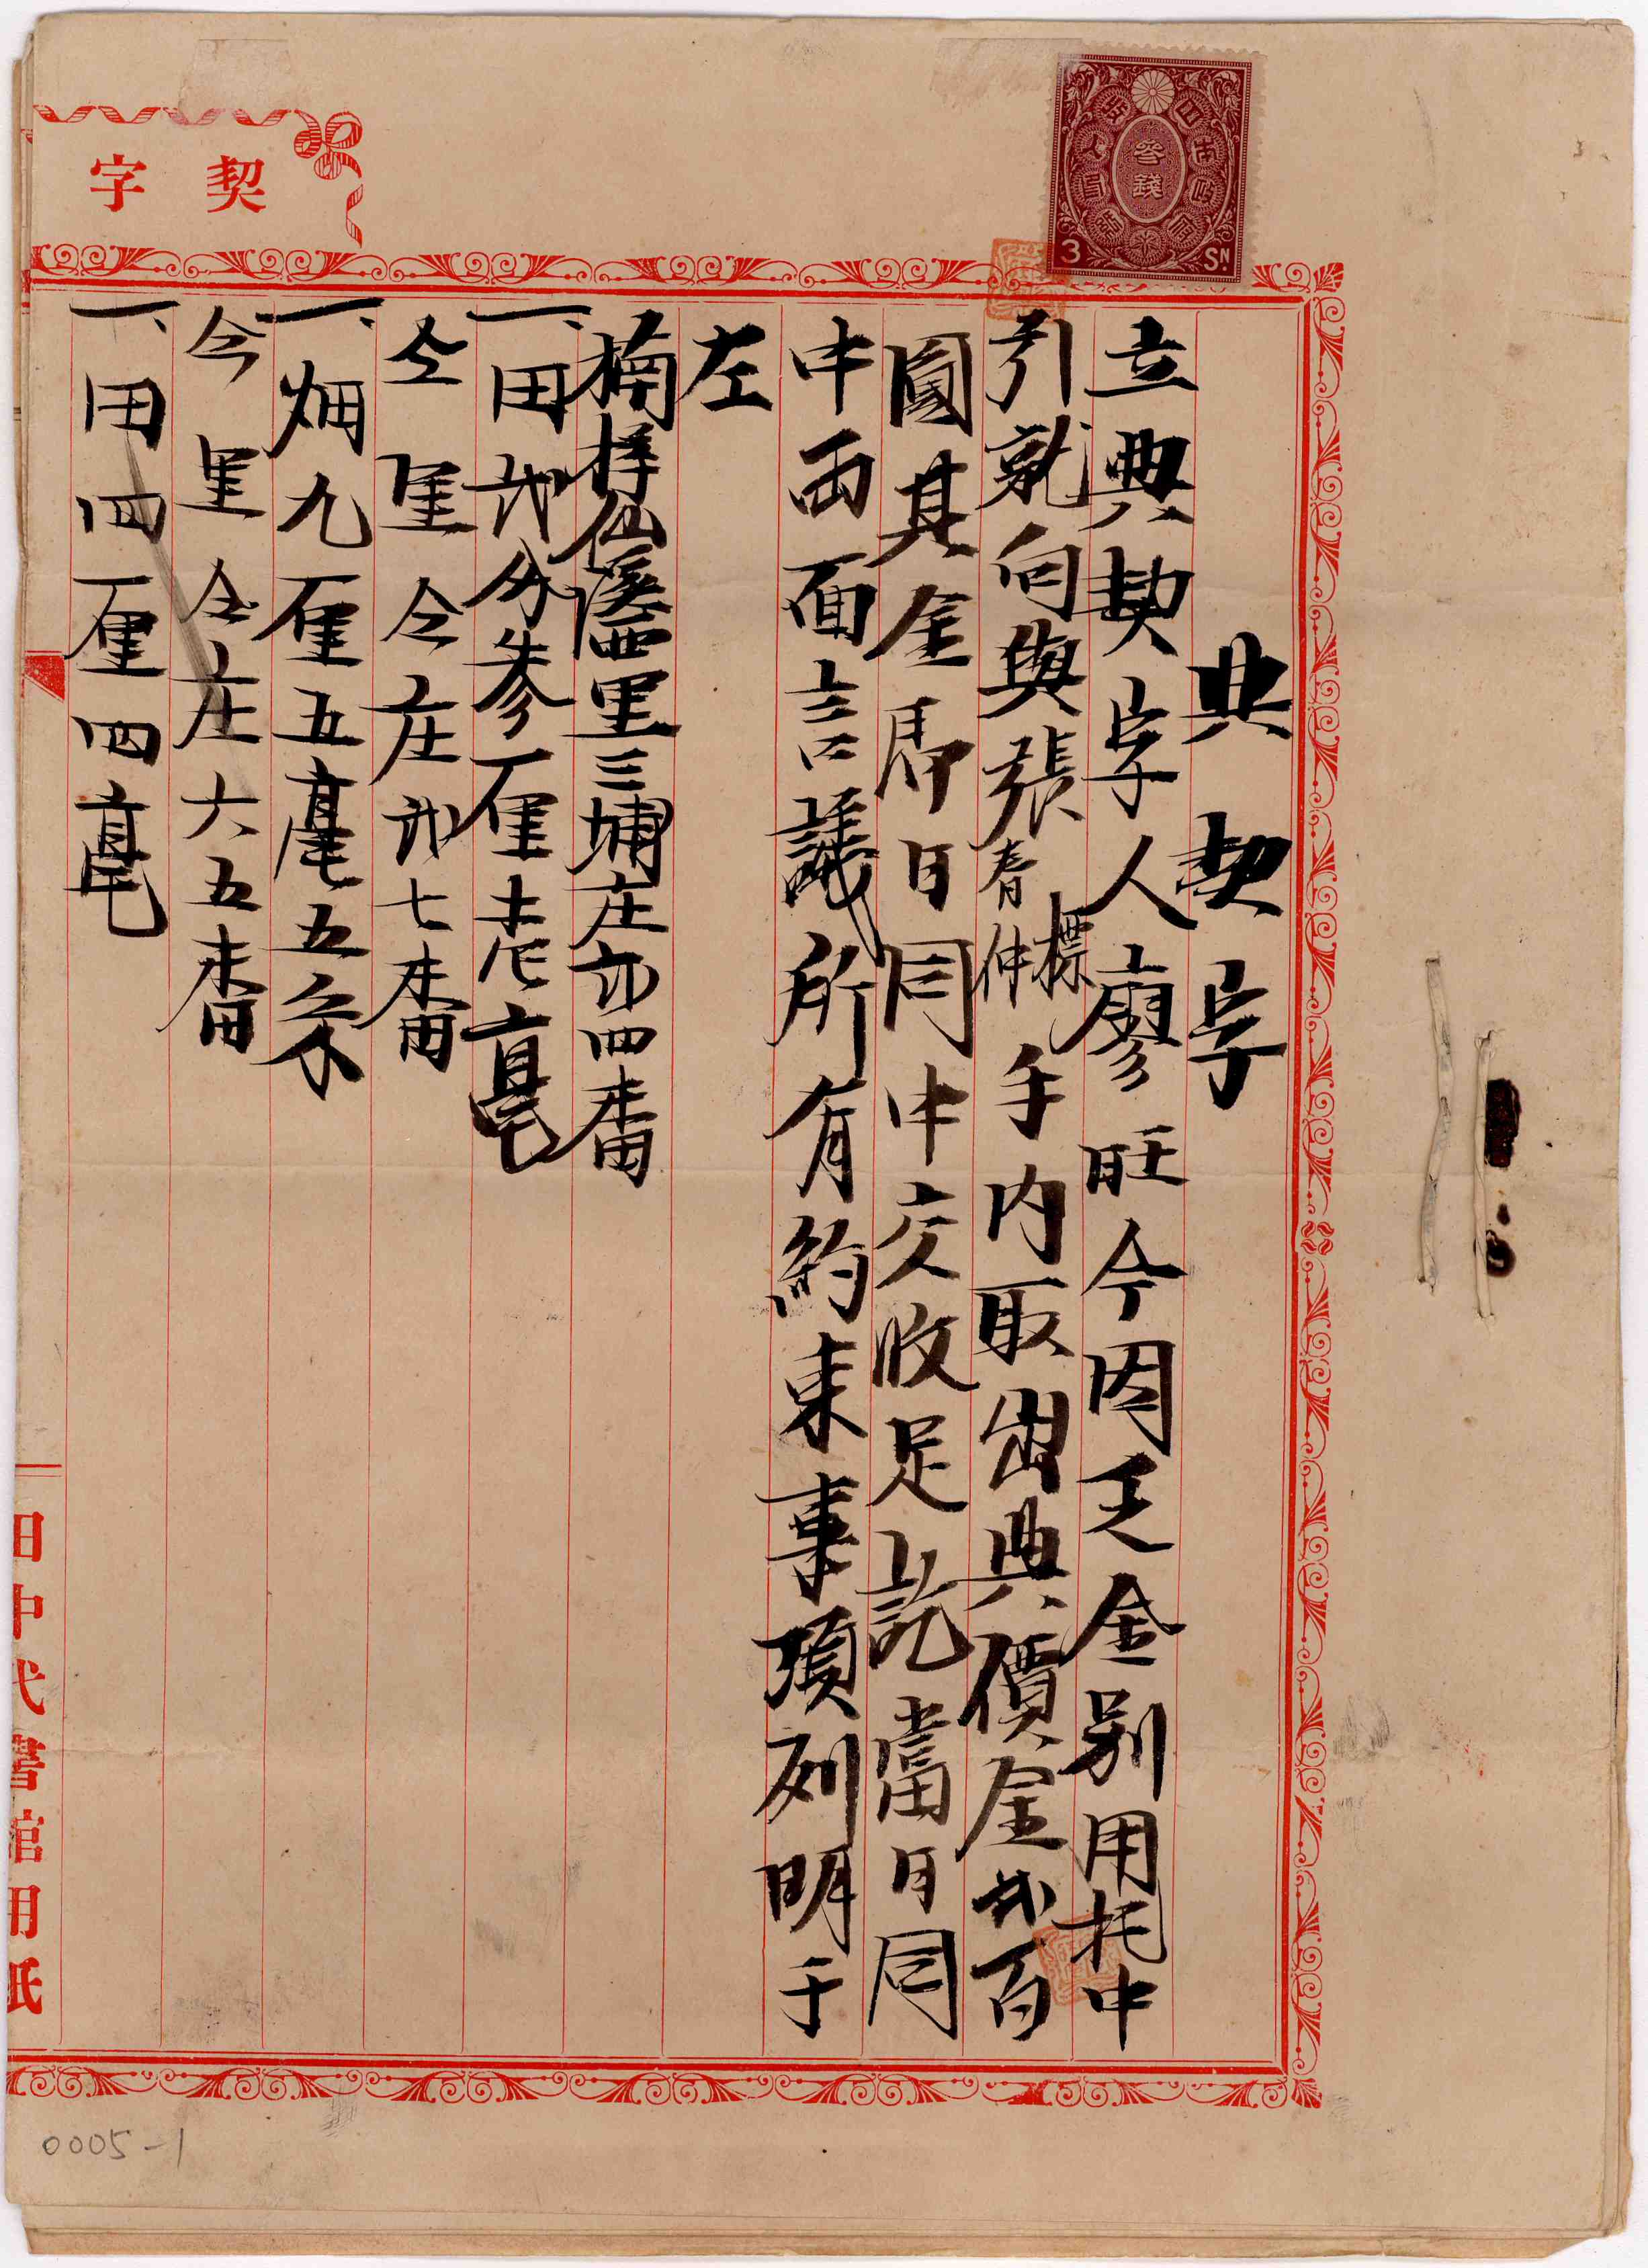 契字
參錢
3 SN.
典契字
立典契字人廖旺今因乏金別用托中
引就向與張春標伸手內取出典價金貳百
圓其金居即日同中交收足訖當日同
中面面言議所有約束事項列明于
左
楠梓仙溪西里三埔庄卯四番
一、田弍分參厘壱毫
仝里仝庄弍七番
一、畑九厘五毫五糸
仝里仝庄六五番
一、田四厘四毫
田中代書館用紙
0005-1